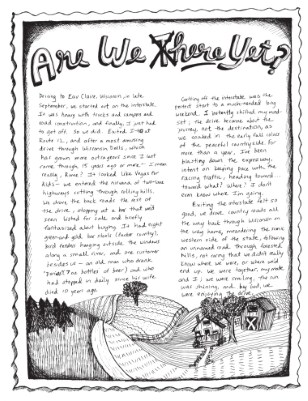 Are We There Yet?
Driving to Eau Claire, Wisconsin, in late
September, we started out on the interstate.
It was heavy with trucks and campers and
road construction, and finally, I just had
to get off. So we did. Exited I-90 at
Route 12, and after a most amazing
drive through Wisconsin Dells, which
has grown more outrageous since I last
came through 15 years ago or more.
It looked like Vegas for
Kids — we entered the nirvana of
highways cutting through rolling hills.
We drove the back roads the rest of
the drive, stopping at a bar that will
soon listed for sale, and briefly
fantasized about buying. It had eight
bar stools
bird feeder hanging outside the windows
along a small river, and one customer
besides us — an old man who drank
and who
had stopped in daily since his wife
died a year ago.
Getting off the interstate was the
perfect start to a much-needed long
weekend. I instantly chilled my mind
set; the drive became about the
journey, not the destination, as
we soaked in the early fall colors
of the peaceful countryside. For
more than a year, I've been
blasting down the expressway,
intent on keeping pace with the
racing traffic, heading toward...
toward what? where? I don't
even know where I'm going.
Exiting the interstate felt so
good, we drove country roads all
the way back through Wisconsin on
the way home, meandering the more
western side of the state, following
an unnamed road through forested
hills, not caring that we didn't really
know where we were, or where we'd
end up. We were together, my mate
and I; we were smiling, the sun
was shining, and, by God, we
were enjoying the drive.